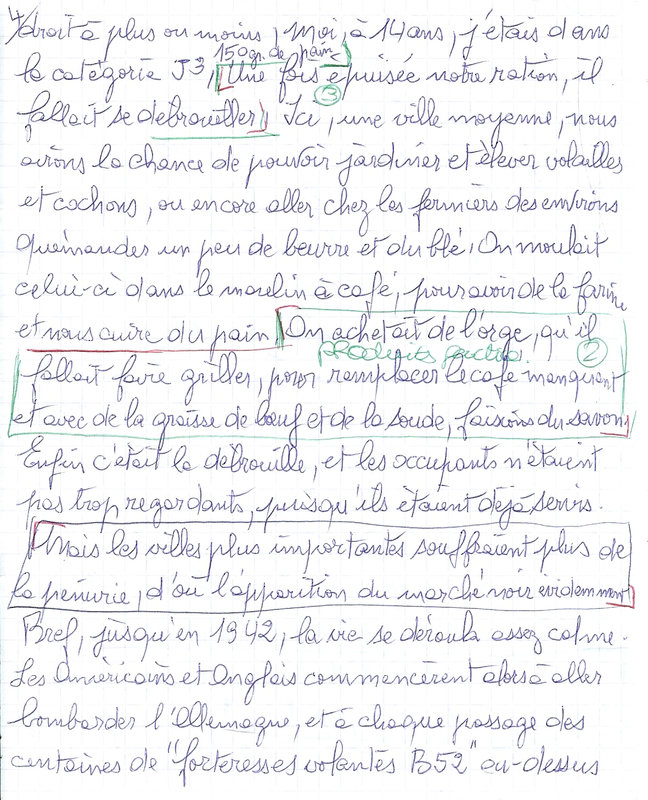 4/ droit à plus ou moins, moi, à 14 ans, j'étais dans
150 gr. de pain
la catégorie J3, Une fois épuisée notre ration, il
3
fallait se débrouiller. Ici, une ville moyenne, nous
avions la chance de pouvoir jardiner et élever volailles
et cochons, ou encore aller chez les fermiers des environs
quémander un peu de beurre et du blé. On moulait
celui-ci dans le moulin à café, pour avoir de la farine
et nous cuire du pain. On achetait de l'orge, qu'il
produits 2
fallait faire griller, pour remplacer le café manquant
et avec de la graisse de bœuf et de la soude, faisions du savon
Enfin c'était la débrouille, et les occupants n'étaient
pas trop regardants, puisqu'ils étaient déjà servis.
Mais les villes plus importantes souffraient plus de
la pénurie, d'où l'apparition du marché noir évidemment
Bref, jusqu'en 1942, la vie se déroula assez calme.
Les Américains et Anglais commencèrent alors à aller
bombarder l'Allemagne, et à chaque passage des
centaines de "forteresses volantes B52" au-dessus